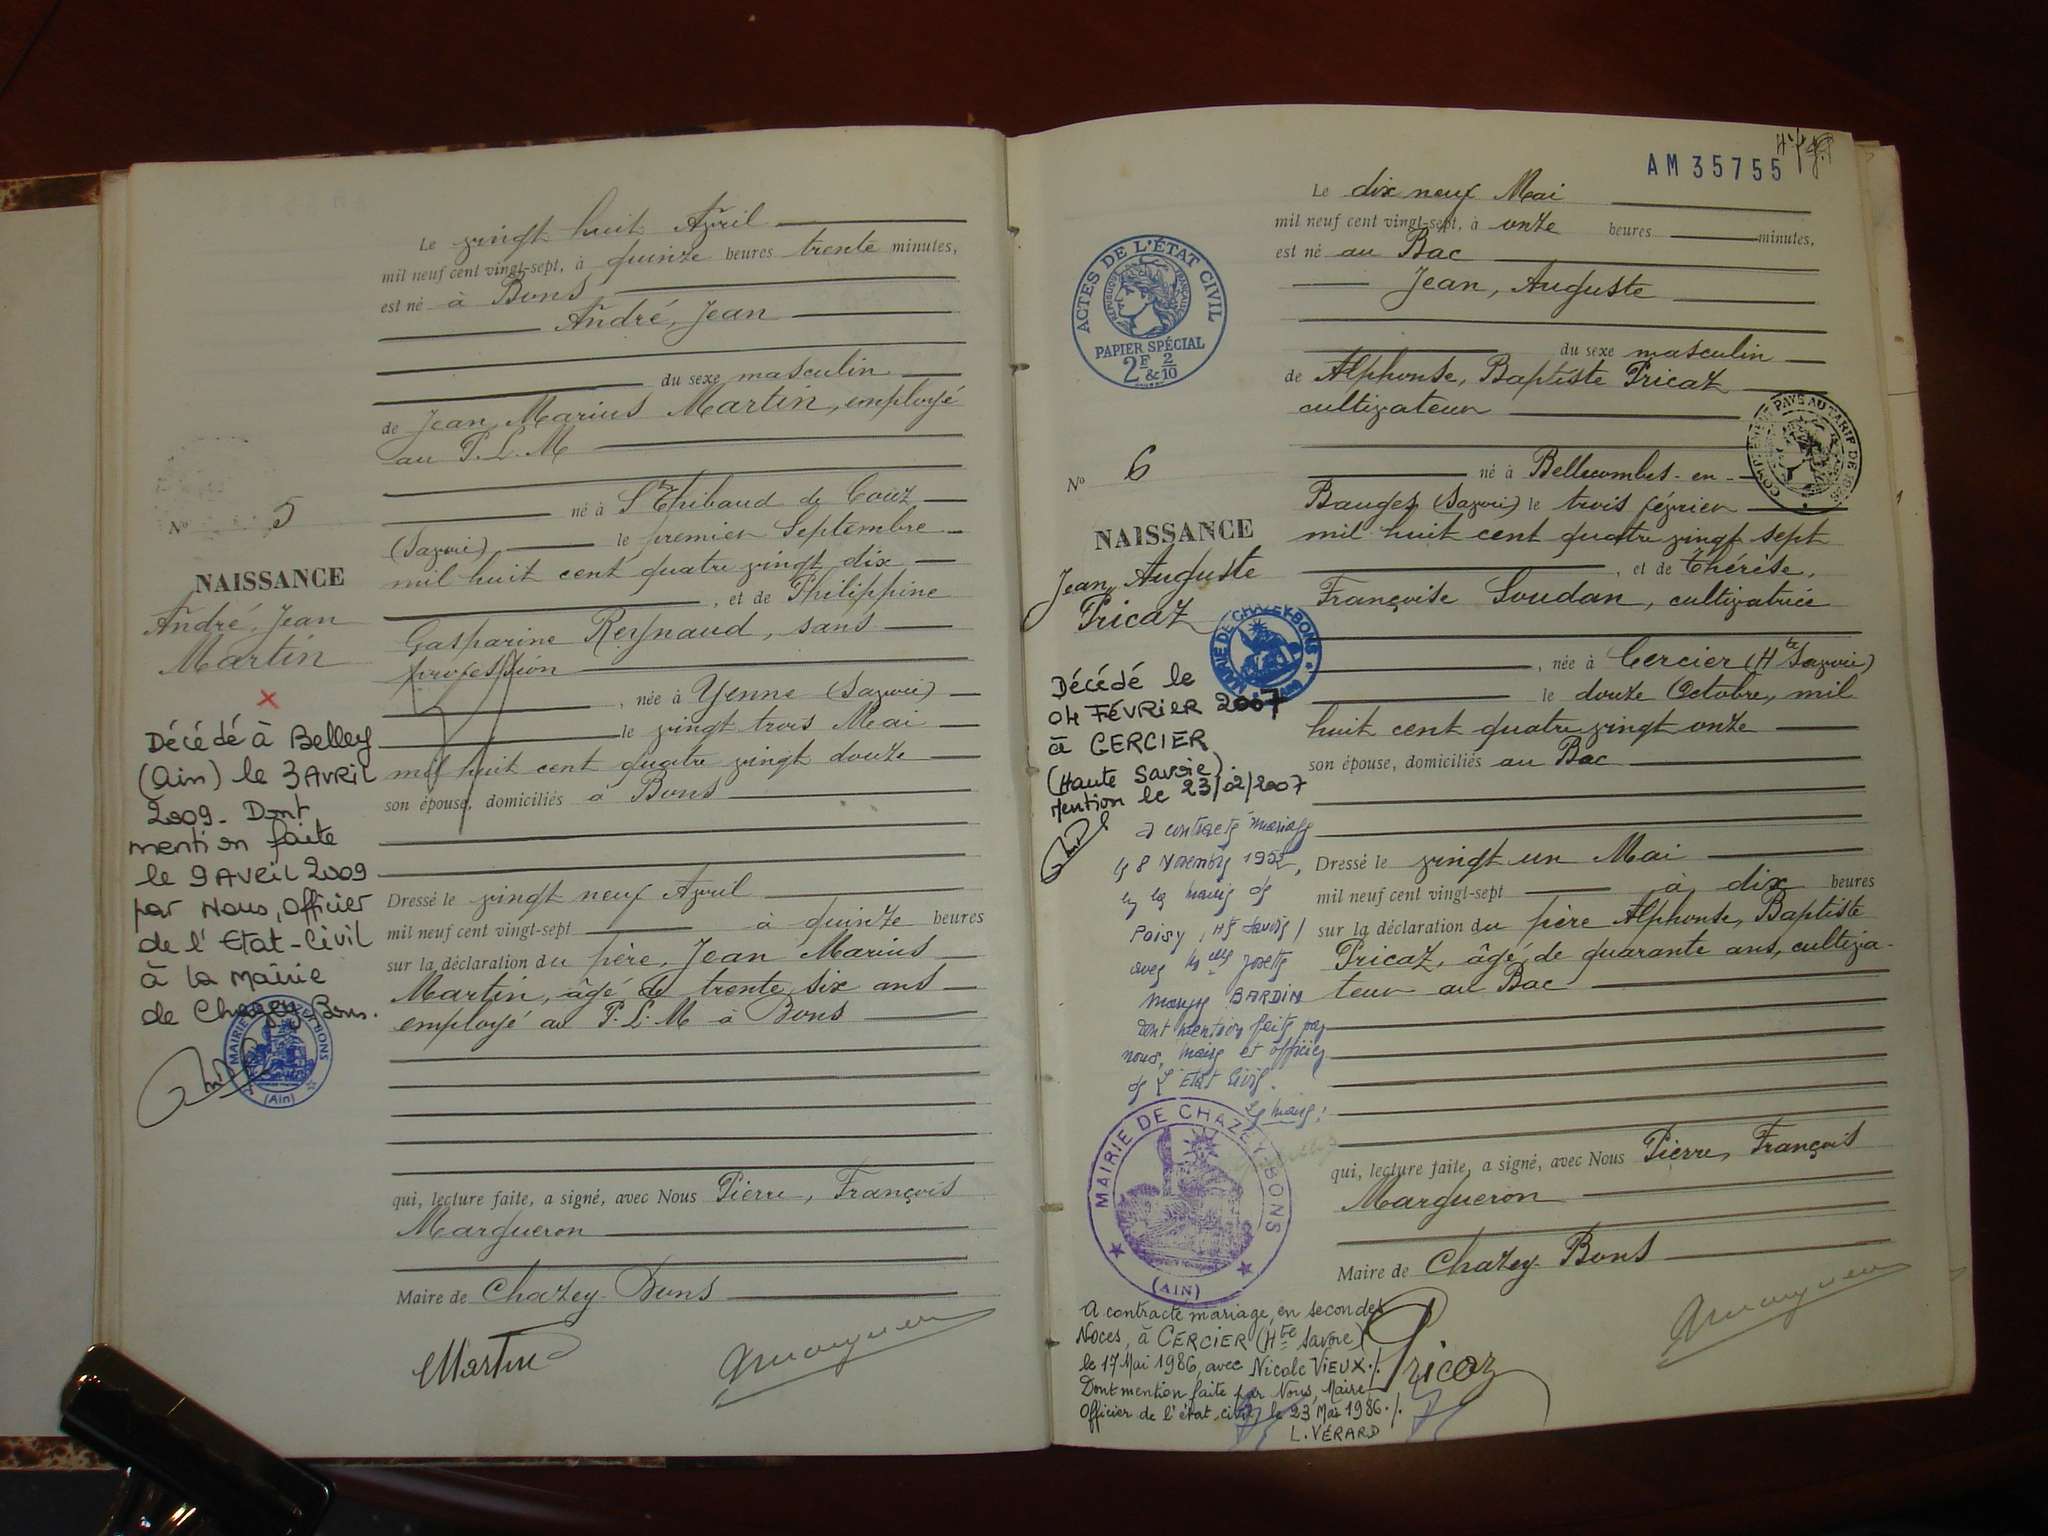 Le vingt huit Avril
mil neuf cent vingt-sept, à quinze heures trente minutes,
est né à Bons
André, Jean
du sexe masculin
de Jean Marius Martin, employé
au P.L.M
né à St Thibaud de Couz
(Savoie) le premier Septembre
mil huit cent quatre vingt dix
, et de Philippine
Gasparine Reynaud, sans
profession
, née à Yenne (Savoie)
le vingt trois Mai
mil huit cent quatre vingt douze
son épouse, domiciliés à Bons
Dressé le vingt neuf Avril
mil neuf cent vingt-sept à quinze heures
sur la déclaration du père, Jean Marius
Martin, âgé de trente six ans
employé au P.L.M à Bons
qui, lecture faite, a signé, avec Nous Pierre, François
Margueron
Maire de Chazey-Bons
Martin
No 5
NAISSANCE
André, Jean
Martin
Décédé à Belley
(Ain) le 3 AVRIL
2009. Dont
mention faite
le 9 AVRIL 2009
par Nous, Officier
de l'Etat-Civil
à la Mairie
de Chazey-Bons.
MAIRIE DE CHAZEY-BONS
(Ain)
AM 35755
Le dix neuf Mai
mil neuf cent vingt-sept, à onze heures minutes,
est né au Bac
Jean, Auguste
du sexe masculin
de Alphonse, Baptiste Pricaz
cultivateur
né à Bellecombes-en-
Bauges (Savoie) le trois février
mil huit cent quatre vingt sept
, et de Thérèse,
Françoise Soudan, cultivatrice
, née à Cercier (Hte Savoie)
le douze Octobre, mil
huit cent quatre vingt onze
son épouse, domiciliés au Bac
Dressé le vingt un Mai
mil neuf cent vingt-sept à dix heures
sur la déclaration du père Alphonse, Baptiste
Pricaz, âgé de quarante ans, cultiva-
teur au Bac
qui, lecture faite, a signé, avec Nous Pierre, François
Margueron
Maire de Chazey-Bons
Pricaz
ACTES DE L'ÉTAT CIVIL
RÉPUBLIQUE FRANÇAISE
PAPIER SPÉCIAL
2F & 2/10
COMPLÉMENT PAYÉ AU TARIF DE
No 6
NAISSANCE
Jean, Auguste
Pricaz
MAIRIE DE CHAZEY-BONS
Décédé le
04 FÉVRIER 2007
à CERCIER
(Haute Savoie).
Mention le 23/02/2007
a contracté mariage
le 8 Novembre 1952,
en la mairie de
Poisy, (Hte Savoie)
avec Mlle Josette
BARDIN
dont mention faite par
nous, maire et officier
de l'Etat Civil.
Le maire:
MAIRIE DE CHAZEY-BONS
(AIN)
A contracté mariage, en secondes
Noces, à CERCIER (Hte Savoie)
le 17 Mai 1986, avec Nicole VIEUX./.
Dont mention faite par Nous, Maire
Officier de l'état civil le 23 Mai 1986./.
L. VÉRARD